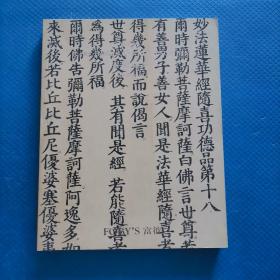 妙法蓮華經隨喜功德品第十八
爾時彌勒菩薩摩訶薩白佛言世尊若
有善男子善女人聞是法華經隨喜者
得幾所福而說偈言
世尊滅度後 其有聞是經 若能隨喜者
為得幾所福
爾時佛告彌勒菩薩摩訶薩阿逸多如
來滅後若比丘比丘尼優婆塞優婆夷